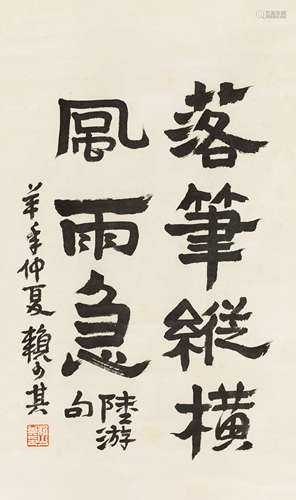 落筆縱橫
風雨急
陸游
句
羊年仲夏賴少其